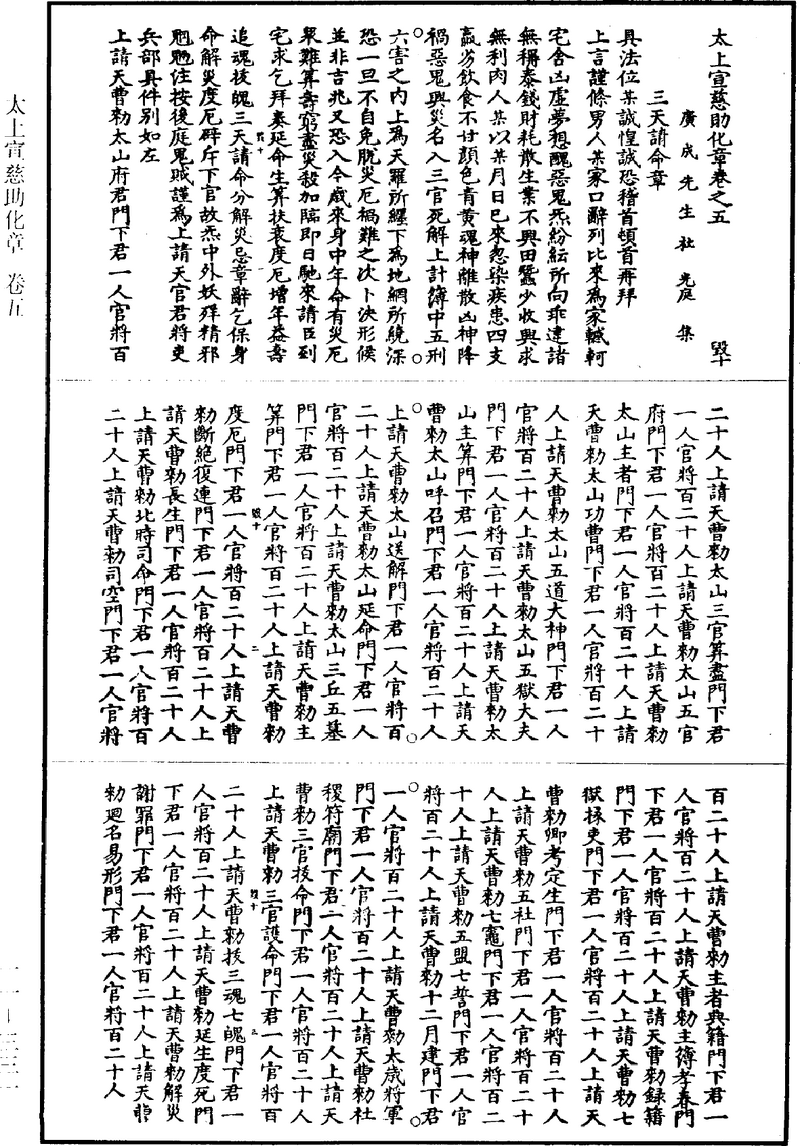 太上宣慈助化章卷之五
廣成先生杜光庭集
毀十
三天請命章
具法位某誠惶誠恐稽首頓首再拜
上言謹條男人某家口辭列比來為家轗軻
宅舍凶虛夢想醜惡鬼炁紛紜所向乖違諸
無稱泰錢財耗散生業不興田蠶少收興求
無利肉人某以某月日已來忽染疾患四支
羸劣飲食不甘顏色青黃魂神離散凶神降
禍惡鬼興災名入三官死解上計簿中五刑
六害之內上為天羅所纏下為地網所繞深
恐一旦不自免脫災厄禍難之次卜決形候
並非吉兆又恐入今歲來身中年命有災厄
衆難算壽窮盡災殺加臨即日馳來請臣到
宅求乞拜奏延命生算扶衰度厄增年益壽
毀十
一
追魂拔魄三天請命分解災忌章辭乞保身
命解災度厄辟斥下官故炁中外妖殃精邪
魍魎注按後庭鬼賊謹為上請天官君將吏
兵部具件別如左
上請天曹勑太山府君門下君一人官將百
二十人上請天曹勑太山三官算盡門下君
一人官將百二十人上請天曹勑太山五官
府門下君一人官將百二十人上請天曹勑
太山主者門下君一人官將百二十人上請
天曹勑太山功曹門下君一人官將百二十
人上請天曹勑太山五道大神門下君一人
官將百二十人上請天曹勑太山五獄大夫
門下君一人官將百二十人上請天曹勑太
山主算門下君一人官將百二十人上請天
曹勑太山呼召門下君一人官將百二十人
上請天曹勑太山送解門下君一人官將百
二十人上請天曹勑太山延命門下君一人
官將百二十人上請天曹勑太山三丘五墓
門下君一人官將百二十人上請天曹勑主
算門下君一人官將百二十人上請天曹勑
毀十
二
度厄門下君一人官將百二十人上請天曹
勑斷絕復連門下君一人官將百二十人上
請天曹勑長生門下君一人官將百二十人
上請天曹勑北時司命門下君一人官將百
二十人上請天曹勑司空門下君一人官將
百二十人上請天曹勑主者典籍門下君一
人官將百二十人上請天曹勑主簿孝春門
下君一人官將百二十人上請天曹勑錄籍
門下君一人官將百二十人上請天曹勑七
獄掾吏門下君一人官將百二十人上請天
曹勑卿考定生門下君一人官將百二十人
上請天曹勑五社門下君一人官將百二十
人上請天曹勑七竈門下君一人官將百二
十人上請天曹勑五盟七誓門下君一人官
將百二十人上請天曹勑十二月建門下君
一人官將百二十人上請天曹勑太歲將軍
門下君一人官將百二十人上請天曹勑社
稷符廟門下君一人官將百二十人上請天
曹勑三官拔命門下君一人官將百二十人
上請天曹勑三官護命門下君一人官將百
毀十
三
二十人上請天曹勑拔三魂七魄門下君一
人官將百二十人上請天曹勑延生度死門
下君一人官將百二十人上請天曹勑解災
謝罪門下君一人官將百二十人上請天曹
勑迴名易形門下君一人官將百二十人
太上宣慈助化章 卷五